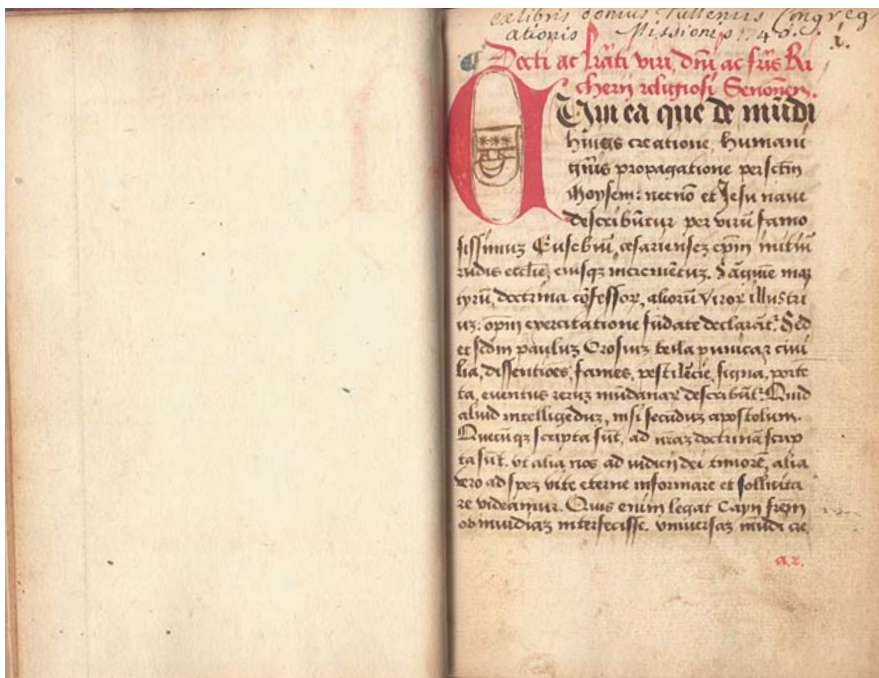 ex libris domus Tullensis Congreg
ationis Missionis 1740. i.
Docti ac Lr̄ati viri, dn̄i ac fr̄is Ri
cherij religiosi Senonen̄.
Cum ea que de mūdi
huius creatione, humani
gn̄is propagatione per sct̄m
Moysem: necnō et Jesu naue
describūtur per virū famo
sissimuz Eusebiū, cesariensez ep̄m initiū
rudis ecclīe, eiusqz incremētuz. Sāguine mar
tyrū, doctrina cōfessor, aliorū viror illustri
uz: opm̄ exercitatione fūdate declarāt. Sed
et sedm̄ pauluz Orosiuz bella punicaz ciui
lia, dissentiões, fames, pestilēcie, signa, porte
ta, euentus reruz mūdanar describūt. Quid
aliud intelligēduz, nisi secūduz apostolum.
Quecūqz scripta sūt, ad nr̄az doctrinā scrip
ta sūt. vt alia nos ad iudicij dei timorē, alia
vero ad spez vite eterne informare et sollicita
re videamur. Quis enim legat Cayn frem̄
ob inuidiaz interfecisse. vniuersaz mūdi cre
a.2.